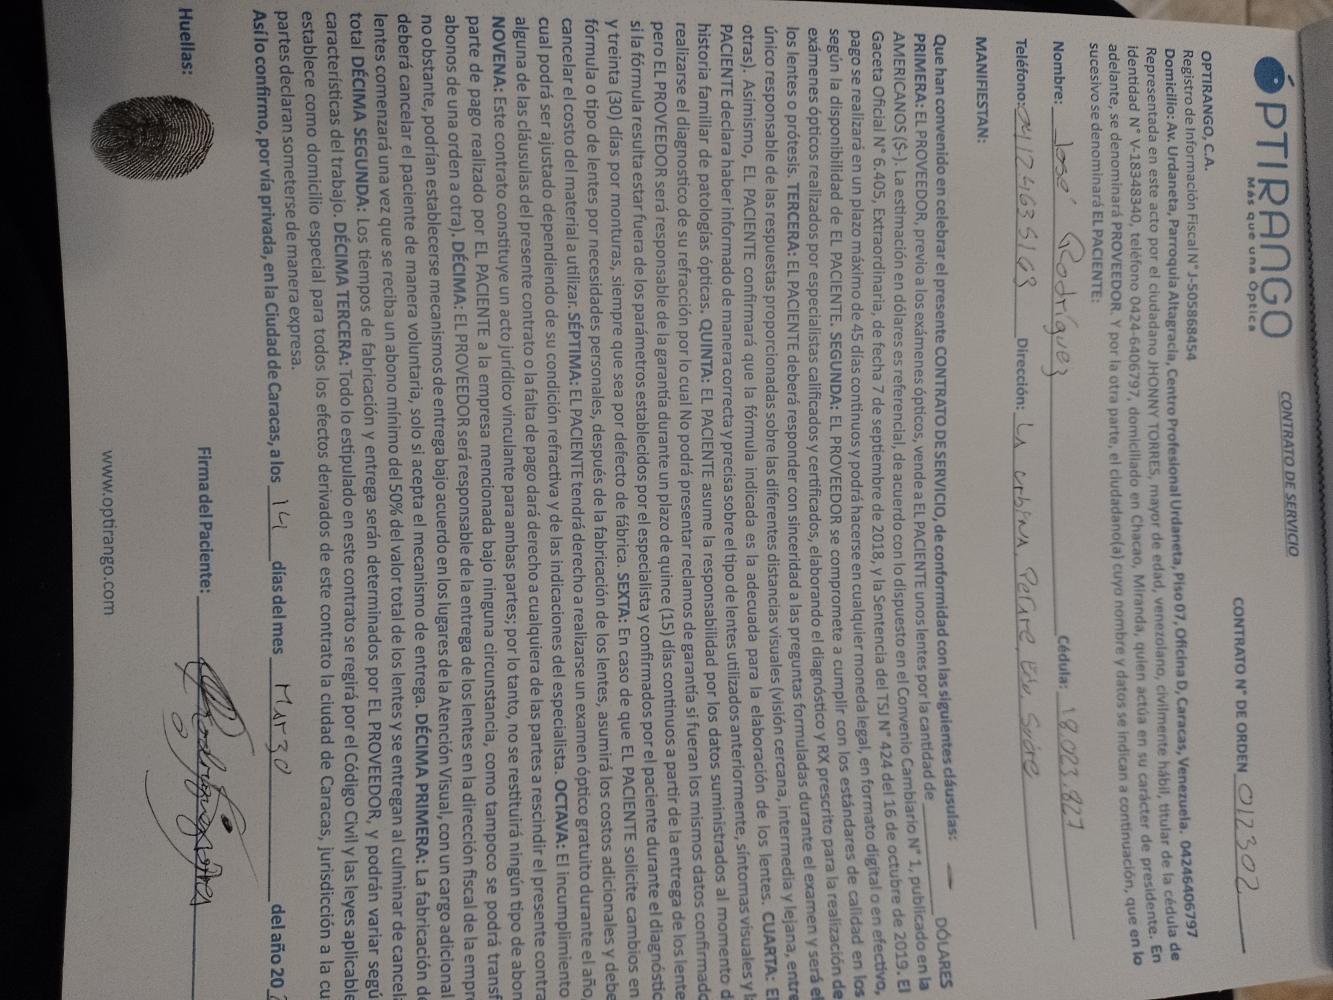 CONTRATO DE SERVICIO
ÓPTIRANGO
Más que una Óptica
CONTRATO N° DE ORDEN 012302
OPTIRANGO, C.A.
Registro de Información Fiscal N° J-505868454
Domicilio: Av. Urdaneta, Parroquia Altagracia, Centro Profesional Urdaneta, Piso 07, Oficina D, Caracas, Venezuela. 04246406797
Representada en este acto por el ciudadano JHONNY TORRES, mayor de edad, venezolano, civilmente hábil, titular de la cédula de
identidad N° V-18348340, teléfono 0424-6406797, domiciliado en Chacao, Miranda, quien actúa en su carácter de presidente. En
adelante, se denominará PROVEEDOR. Y por la otra parte, el ciudadano(a) cuyo nombre y datos se indican a continuación, que en lo
sucesivo se denominará EL PACIENTE:
Nombre: José Rodríguez Cédula: 18.023.827
Teléfono: 04124635163 Dirección: La urbina Petare, Edo Sucre
MANIFIESTAN:
Que han convenido en celebrar el presente CONTRATO DE SERVICIO, de conformidad con las siguientes cláusulas:
PRIMERA: EL PROVEEDOR, previo a los exámenes ópticos, vende a EL PACIENTE unos lentes por la cantidad de — DÓLARES
AMERICANOS ($-). La estimación en dólares es referencial, de acuerdo con lo dispuesto en el Convenio Cambiario N° 1, publicado en la
Gaceta Oficial N° 6.405, Extraordinaria, de fecha 7 de septiembre de 2018, y la Sentencia del TSJ N° 424 del 16 de octubre de 2019. El
pago se realizará en un plazo máximo de 45 días continuos y podrá hacerse en cualquier moneda legal, en formato digital o en efectivo,
según la disponibilidad de EL PACIENTE. SEGUNDA: EL PROVEEDOR se compromete a cumplir con los estándares de calidad en los
exámenes ópticos realizados por especialistas calificados y certificados, elaborando el diagnóstico y RX prescrito para la realización de
los lentes o prótesis. TERCERA: EL PACIENTE deberá responder con sinceridad a las preguntas formuladas durante el examen y será el
único responsable de las respuestas proporcionadas sobre las diferentes distancias visuales (visión cercana, intermedia y lejana, entre
otras). Asimismo, EL PACIENTE confirmará que la fórmula indicada es la adecuada para la elaboración de los lentes. CUARTA: El
PACIENTE declara haber informado de manera correcta y precisa sobre el tipo de lentes utilizados anteriormente, síntomas visuales y
historia familiar de patologías ópticas. QUINTA: EL PACIENTE asume la responsabilidad por los datos suministrados al momento d
realizarse el diagnostico de su refracción por lo cual No podrá presentar reclamos de garantía si fueran los mismos datos confirmad
pero EL PROVEEDOR será responsable de la garantía durante un plazo de quince (15) días continuos a partir de la entrega de los lente
si la fórmula resulta estar fuera de los parámetros establecidos por el especialista y confirmados por el paciente durante el diagnóstic
y treinta (30) días por monturas, siempre que sea por defecto de fábrica. SEXTA: En caso de que EL PACIENTE solicite cambios en
fórmula o tipo de lentes por necesidades personales, después de la fabricación de los lentes, asumirá los costos adicionales y debe
cancelar el costo del material a utilizar. SÉPTIMA: EL PACIENTE tendrá derecho a realizarse un examen óptico gratuito durante el año,
cual podrá ser ajustado dependiendo de su condición refractiva y de las indicaciones del especialista. OCTAVA: El incumplimiento
alguna de las cláusulas del presente contrato o la falta de pago dará derecho a cualquiera de las partes a rescindir el presente contra
NOVENA: Este contrato constituye un acto jurídico vinculante para ambas partes; por lo tanto, no se restituirá ningún tipo de abon
parte de pago realizado por EL PACIENTE a la empresa mencionada bajo ninguna circunstancia, como tampoco se podrá transf
abonos de una orden a otra). DÉCIMA: EL PROVEEDOR será responsable de la entrega de los lentes en la dirección fiscal de la empre
no obstante, podrían establecerse mecanismos de entrega bajo acuerdo en los lugares de la Atención Visual, con un cargo adicional
deberá cancelar el paciente de manera voluntaria, solo si acepta el mecanismo de entrega. DÉCIMA PRIMERA: La fabricación de
lentes comenzará una vez que se reciba un abono mínimo del 50% del valor total de los lentes y se entregan al culminar de cancela
total DÉCIMA SEGUNDA: Los tiempos de fabricación y entrega serán determinados por EL PROVEEDOR, y podrán variar segú
características del trabajo. DÉCIMA TERCERA: Todo lo estipulado en este contrato se regirá por el Código Civil y las leyes aplicable
establece como domicilio especial para todos los efectos derivados de este contrato la ciudad de Caracas, jurisdicción a la cu
partes declaran someterse de manera expresa.
Así lo confirmo, por vía privada, en la Ciudad de Caracas, a los 14 días del mes Marzo del año 20
Huellas:
Firma del Paciente:
www.optirango.com